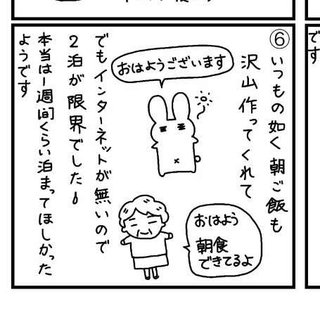 ⑥
いつもの如く朝ご飯も
沢山作ってくれて
おはようございます
おはよう
朝食
できてるよ
でもインターネットが無いので
2泊が限界でした
本当は1週間くらい泊まってほしかった
ようです
です